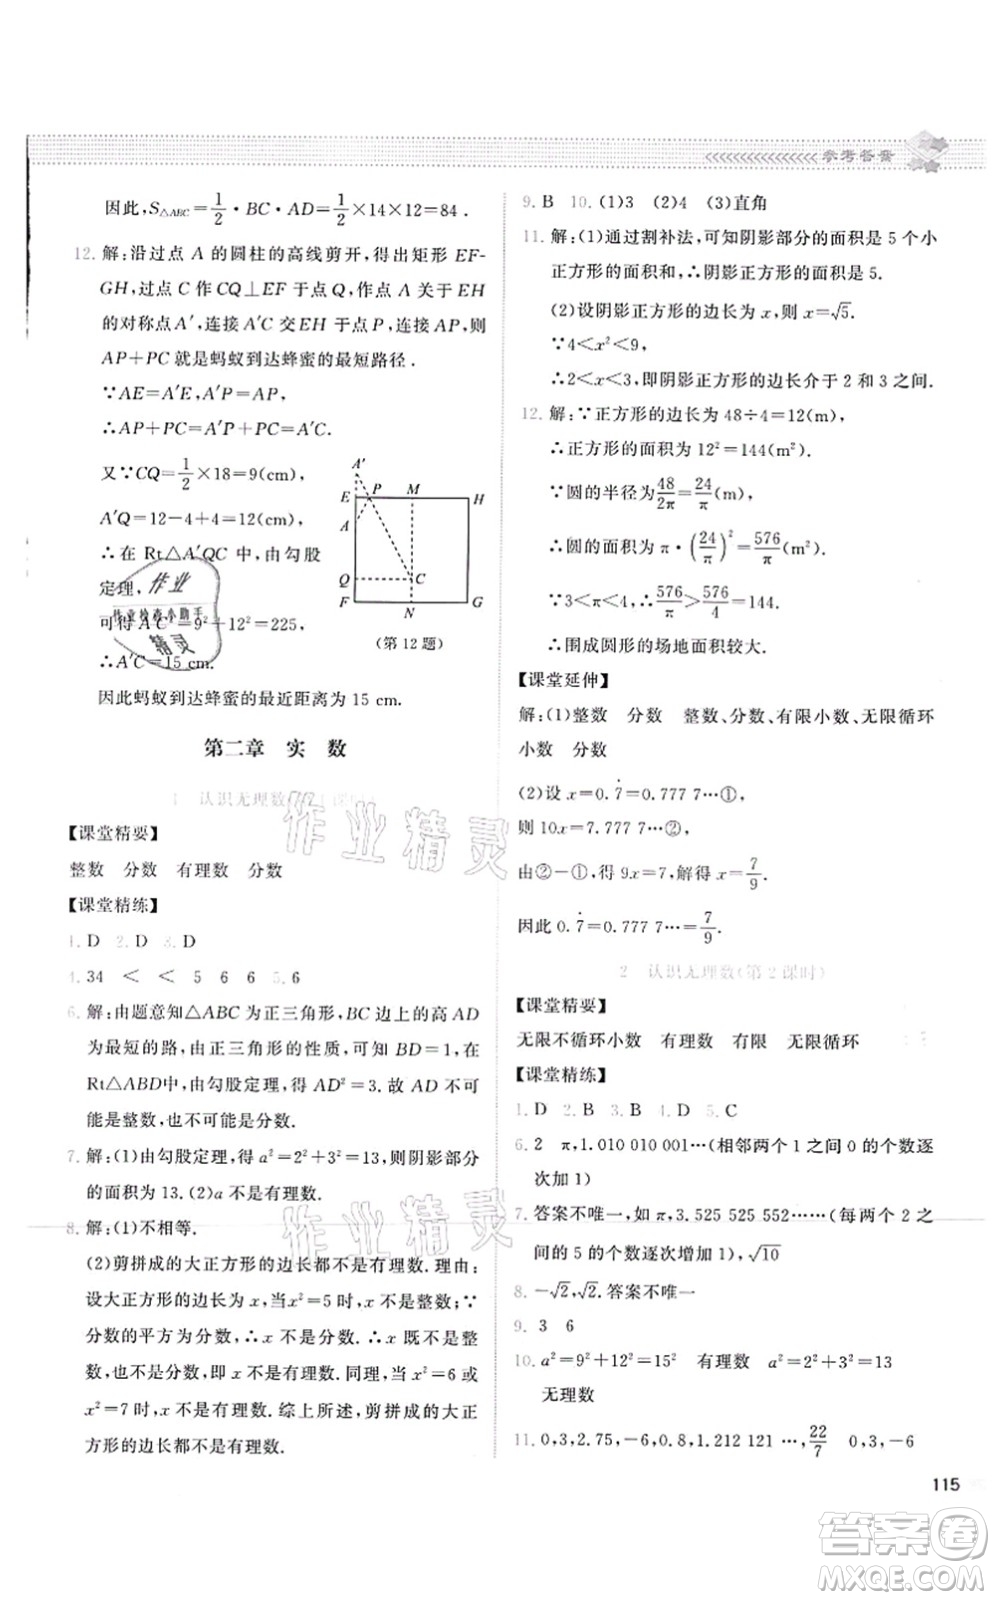 参考答案
因此,S△ABC=1/2·BC·AD=1/2×14×12=84.
12. 解:沿过点 A 的圆柱的高线剪开,得出矩形 EF-
GH,过点 C 作 CQ⊥EF 于点 Q,作点 A 关于 EH
的对称点 A′,连接 A′C 交 EH 于点 P,连接 AP,则
AP+PC 就是蚂蚁到达蜂蜜的最短路径.
∵AE=A′E,A′P=AP,
∴AP+PC=A′P+PC=A′C.
又∵CQ=1/2×18=9(cm)
A′Q=12-4+4=12(cm),
∴在 Rt△A′QC 中,由勾股
定理,
可得 A′C²=9²+12²=225,
∴A′C=15 cm.
A′
E P M H
A
Q C
F N G
(第12题)
因此蚂蚁到达蜂蜜的最近距离为 15 cm.
第二章 实 数
1 认识无理数(第1课时)
【课堂精要】
整数 分数 有理数 分数
【课堂精练】
1. D 2. D 3. D
4. 34 < < 5 6 6 5. 6
6. 解:由题意知△ABC 为正三角形,BC 边上的高 AD
为最短的路,由正三角形的性质,可知 BD=1,在
Rt△ABD 中,由勾股定理,得 AD²=3. 故 AD 不可
能是整数,也不可能是分数.
7. 解:(1)由勾股定理,得 a²=2²+3²=13,则阴影部分
的面积为 13.(2)a 不是有理数.
8. 解:(1)不相等.
(2)剪拼成的大正方形的边长都不是有理数. 理由:
设大正方形的边长为 x,当 x²=5 时,x 不是整数;∵
分数的平方为分数,∴x 不是分数. ∴x 既不是整
数,也不是分数,故不是有理数. 同理,当 x²=6 或
x²=7 时,x 不是有理数. 综上所述,剪拼成的大正
方形的边长都不是有理数.
9. B 10. (1)3 (2)4 (3)直角
11. 解:(1)通过割补法,可知阴影部分的面积是 5 个小
正方形的面积和,∴阴影正方形的面积是 5.
(2)设阴影正方形的边长为 x,则 x=√5.
∵4<x²<9,
∴2<x<3,即阴影正方形的边长介于 2 和 3 之间.
12. 解:∵正方形的边长为 48÷4=12(m),
∴正方形的面积为 12²=144(m²).
∵圆的半径为48/2π=24/π(m),
∴圆的面积为 π·(24/π)²=576/π(m²).
∵3<π<4,∴576/π>576/4=144.
∴围成圆形的场地面积较大.
【课堂延伸】
解:(1)整数 分数 整数、分数、有限小数、无限循环
小数 分数
(2)设 x=0.7̇=0.777 7…①,
则 10x=7.777 7…②,
由②-①,得 9x=7,解得 x=7/9.
因此 0.7̇=0.777 7…=7/9.
2 认识无理数(第2课时)
【课堂精要】
无限不循环小数 有理数 有限 无限循环
【课堂精练】
1. D 2. B 3. B 4. D 5. C
6. 2 π,1.010 010 001…(相邻两个 1 之间 0 的个数逐
次加 1)
7. 答案不唯一,如 π,3.525 525 552……(每两个 2 之
间的 5 的个数逐次增加 1),√10
8. -√2,√2. 答案不唯一
9. 3 6
10. a²=9²+12²=15² 有理数 a²=2²+3²=13
无理数
11. 0,3,2.75,-6,0.8,1.212 121 …,22/7 0,3,-6
115
作业
作业检查小助手
精灵
作业精灵
作业精灵
答案圈
MXQE.COM